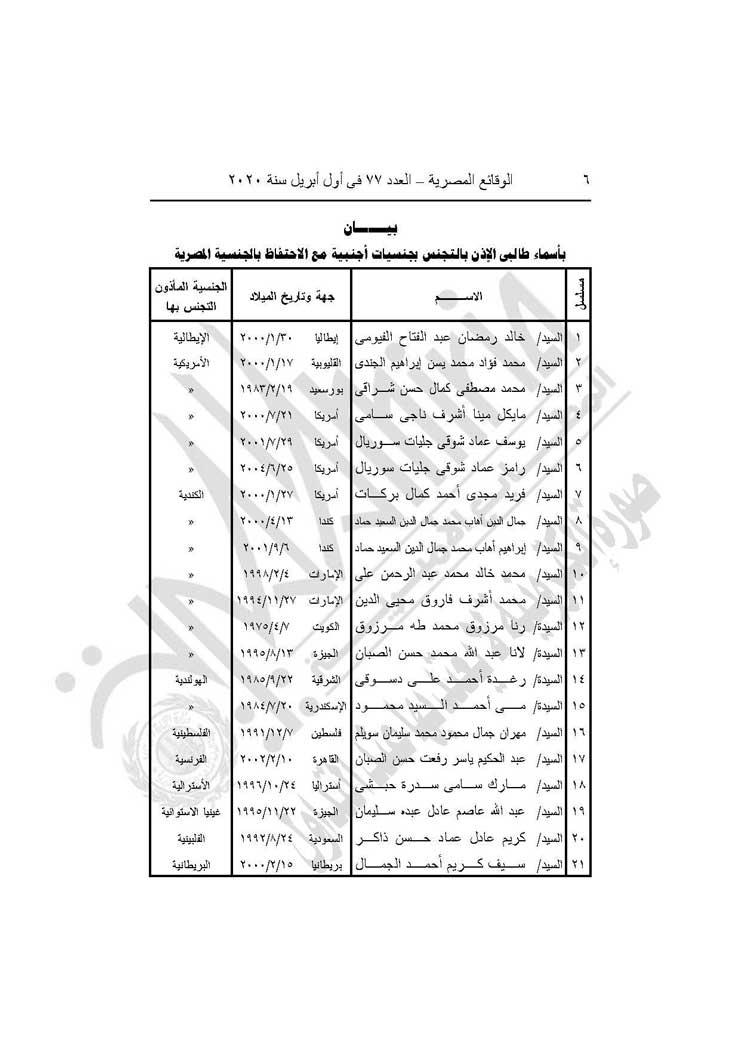 ٦ الوقائع المصرية – العدد ٧٧ فى أول أبريل سنة ٢٠٢٠
بيـــــان
بأسماء طالبى الإذن بالتجنس بجنسيات أجنبية مع الاحتفاظ بالجنسية المصرية
مسلسل الاســـــم جهة وتاريخ الميلاد الجنسية المأذون التجنس بها
١ السيد/ خالد رمضان عبد الفتاح الفيومى إيطاليا ٢٠٠٠/١/٣٠ الإيطالية
٢ السيد/ محمد فؤاد محمد يسن إبراهيم الجندى القليوبية ٢٠٠٠/١/١٧ الأمريكية
٣ السيد/ محمد مصطفى كمال حسن شـــراقى بورسعيد ١٩٨٣/٢/١٩ »
٤ السيد/ مايكل مينا أشرف ناجى ســـامى أمريكا ٢٠٠٠/٧/٢١ »
٥ السيد/ يوسف عماد شوقى جليات ســـوريال أمريكا ٢٠٠١/٧/٢٩ »
٦ السيد/ رامز عماد شوقى جليات سوريال أمريكا ٢٠٠٤/٦/٢٥ »
٧ السيد/ فريد مجدى أحمد كمال بركـــات أمريكا ٢٠٠٠/١/٢٧ الكندية
٨ السيد/ جمال الدين أهاب محمد جمال الدين السعيد حماد كندا ٢٠٠٠/٤/١٣ »
٩ السيد/ إبراهيم أهاب محمد جمال الدين السعيد حماد كندا ٢٠٠١/٩/٦ »
١٠ السيد/ محمد خالد محمد عبد الرحمن على الإمارات ١٩٩٨/٢/٤ »
١١ السيد/ محمد أشرف فاروق محيى الدين الإمارات ١٩٩٤/١١/٢٧ »
١٢ السيدة/ رنا مرزوق محمد طه مـــرزوق الكويت ١٩٧٥/٤/٧ »
١٣ السيدة/ لانا عبد الله محمد حسن الصبان الجيزة ١٩٩٥/٨/١٣ »
١٤ السيدة/ رغـــدة أحمـــد علـــى دســـوقى الشرقية ١٩٨٥/٩/٢٢ الهولندية
١٥ السيدة/ مـــى أحمـــد الـــسيد محمـــود الإسكندرية ١٩٨٤/٧/٢٠ »
١٦ السيد/ مهران جمال محمود محمد سليمان سويلم فلسطين ١٩٩١/١٢/٧ الفلسطينية
١٧ السيد/ عبد الحكيم ياسر رفعت حسن الصبان القاهرة ٢٠٠٢/٢/١٠ الفرنسية
١٨ السيد/ مـــارك ســـامى ســـدرة حبـــشى أستراليا ١٩٩٦/١٠/٢٤ الأسترالية
١٩ السيد/ عبد الله عاصم عادل عبده ســـليمان الجيزة ١٩٩٥/١١/٢٢ غينيا الاستوائية
٢٠ السيد/ كريم عادل عماد حـــسن ذاكـــر السعودية ١٩٩٢/٨/٢٤ الفلبينية
٢١ السيد/ ســـيف كـــريم أحمـــد الجمـــال بريطانيا ٢٠٠٠/٢/١٥ البريطانية